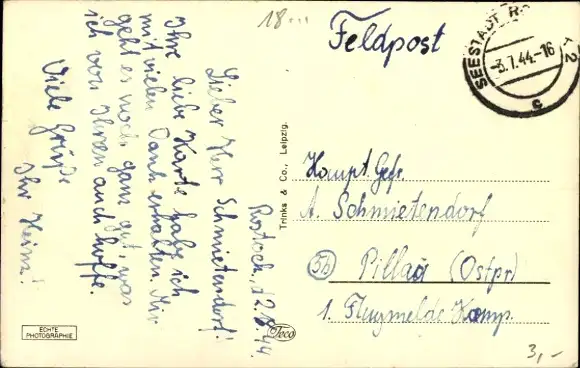 18...
Feldpost
SEESTADT R
-3.7.44.-16
c
2
Rostock, d. 2.7.44.
Lieber Herr Schmietendorf!
Ihre liebe Karte habe ich
mit vielen Dank erhalten. Mir
geht es noch ganz gut, was
ich von Ihnen auch hoffe.
Viele Grüße
Ihr Heinz!
Trinks & Co., Leipzig.
Haupt. Gefr.
A. Schmietendorf
5b Pillau (Ostpr)
1. Flugmelde Komp.
ECHTE
PHOTOGRAPHIE
Trinco
3,-